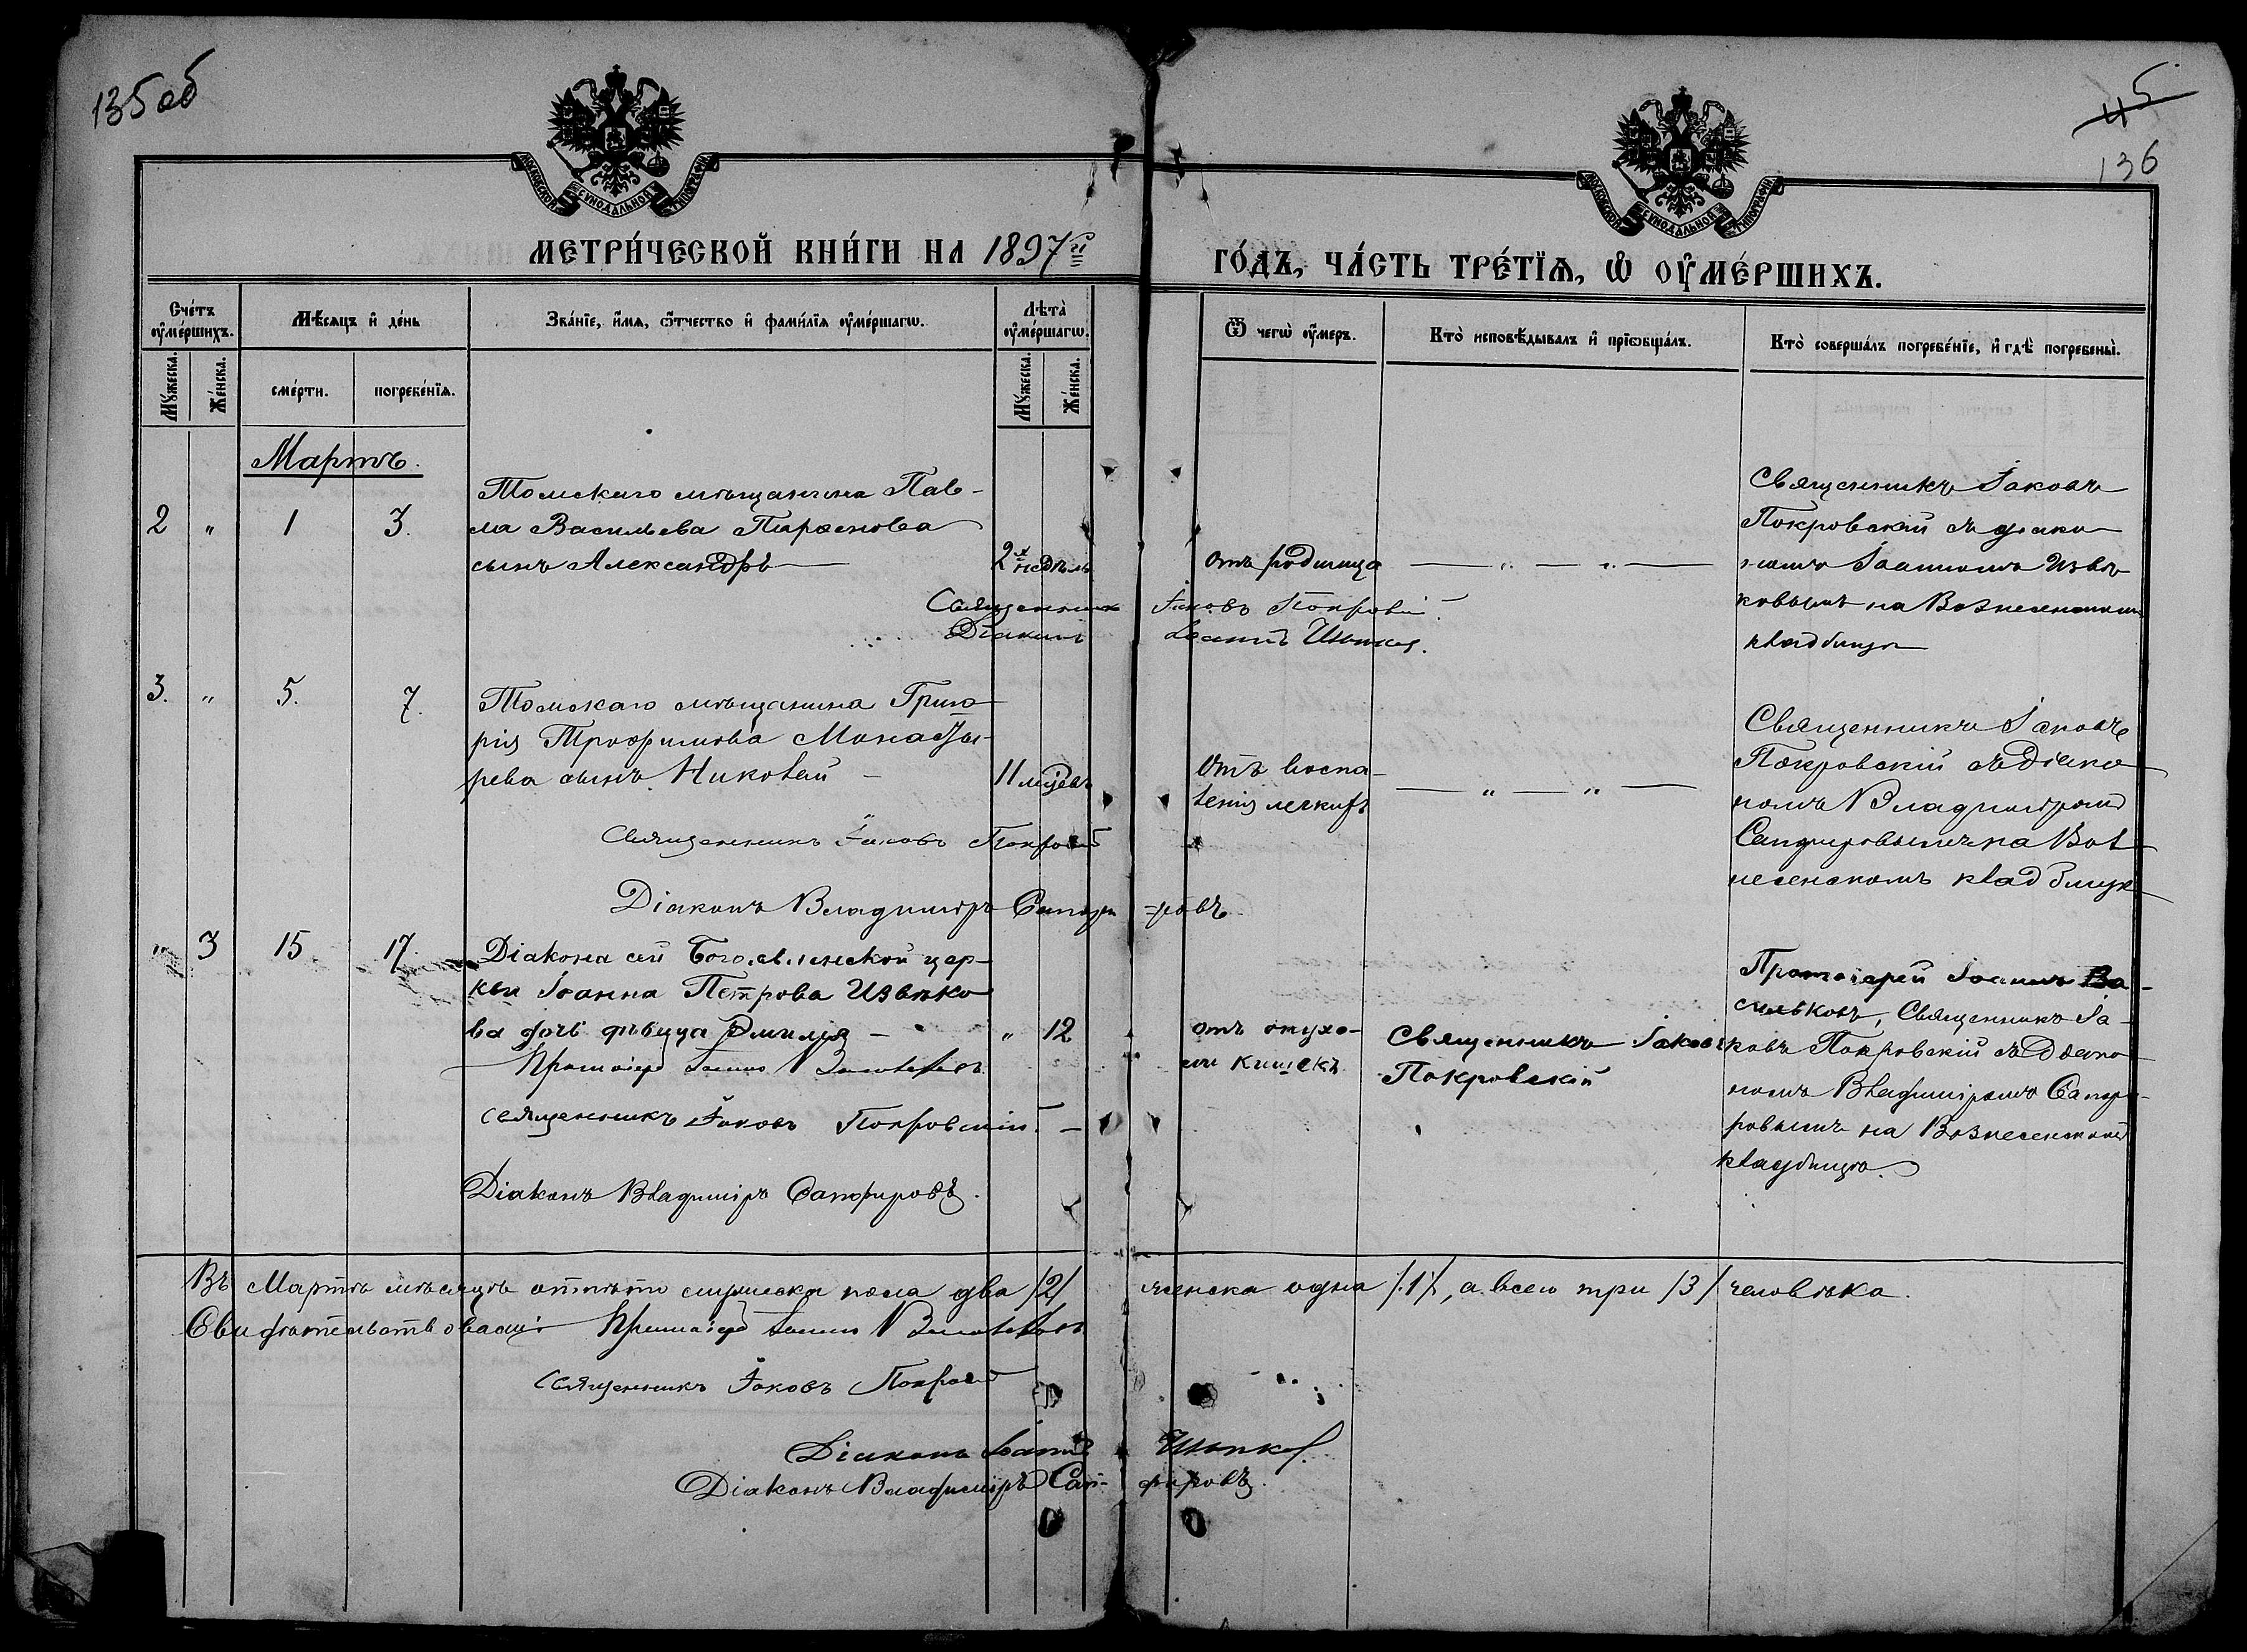 135 об
45
136
МОСКОВСКОЙ СѴНОДАЛЬНОЙ ТИПОГРАФІИ
МОСКОВСКОЙ СѴНОДАЛЬНОЙ ТИПОГРАФІИ
МЕТРИ́ЧЕСКОЙ КНИ́ГИ НА 1897й
ГО́ДЪ, ЧА́СТЬ ТРЕ́ТЇѦ, Ѡ҆ ОУ҆МЕ́РШИХЪ.
Сче́тъ оу҆ме́ршихъ.
Мѣ́сѧцъ и҆ де́нь
Зва́нїе, и҆́мѧ, ѻ҆́тчество и҆ фами́лїѧ оу҆ме́ршагѡ.
Лѣта̀ оу҆ме́ршагѡ.
Ѿ чегѡ̀ оу҆́меръ.
Кто̀ исповѣ́дывалъ и҆ прїѡбща́лъ.
Кто̀ соверша́лъ погребе́нїе, и҆ гдѣ̀ погребены̀.
Мꙋ́жеска.
Же́нска.
сме́рти.
погребе́нїѧ.
Мꙋ́жеска.
Же́нска.
Мартъ.
2 " 1 3.
Томскаго мѣщанина Пав-
ла Васильева Парѳенова
сынъ Александръ
2х недѣль
отъ родимца
— " — " —
Священникъ Іаковъ
Покровскій съ діако-
номъ Іоанномъ Извѣ-
ковымъ на Вознесенскомъ
кладбищѣ
Священникъ Іаковъ Покровскій.
Діаконъ Іоаннъ Извѣковъ.
3. " 5. 7.
Томскаго мѣщанина Григо-
рія Трофимова
рева сынъ Николай —
11 мѣсяц.
Отъ воспа-
ленія легкихъ
— " — " —
Священникъ Іаковъ
Покровскій съ Діако-
номъ Владиміромъ
Сапфировымъ на Воз-
несенскомъ кладбищѣ
Священникъ Іаковъ Покровскій
Діаконъ Владиміръ Сапфи-
ровъ.
" 3 15 17.
Діакона сей Богоявленской цер-
кви Іоанна Петрова Извѣко-
ва дочь дѣвица Эмилія —
" 12
отъ опухо-
ли кишекъ
Священникъ Іаковъ
Покровскій
Протоіерей Іоаннъ Ва-
сильковъ, Священникъ Іа-
ковъ Покровскій съ Діако-
номъ Владиміромъ Сапфи-
ровымъ на Вознесенскомъ
кладбищѣ.
Протоіерей Іоаннъ Васильковъ
Священникъ Іаковъ Покровскій. —
Діаконъ Владиміръ Сапфировъ.
Въ Мартѣ мѣсяцѣ отпѣто мужеска пола два /2/ женска одна /1/, а всего три /3/ человѣка.
Свидѣтельствовали: Протоіерей Іоаннъ Васильковъ
Священникъ Іаковъ Покровскій
Діаконъ Іоаннъ Извѣковъ
Діаконъ Владиміръ Сап-
фировъ.